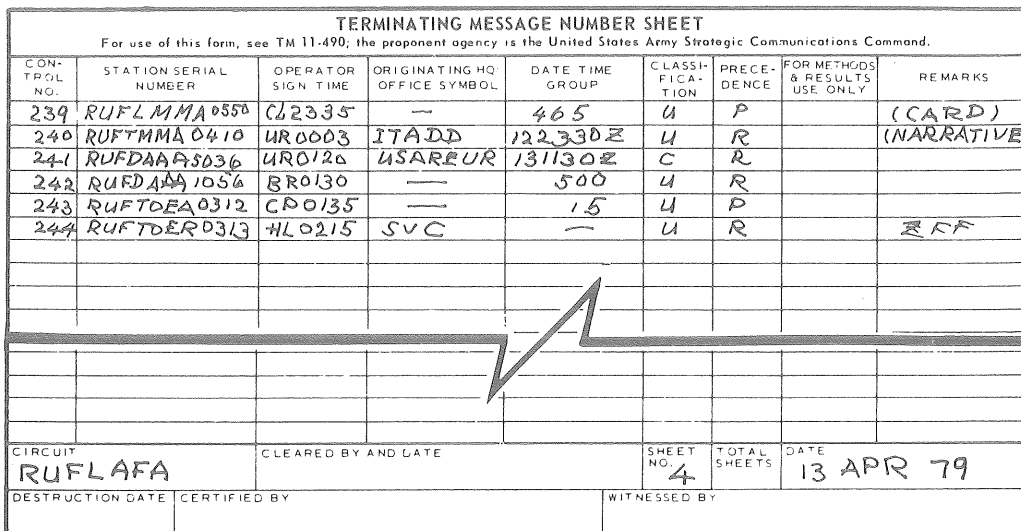 TERMINATING MESSAGE NUMBER SHEET
For use of this form, see TM 11-490; the proponent agency is the United States Army Strategic Communications Command.
CON-TROL NO. STATION SERIAL NUMBER OPERATOR SIGN TIME ORIGINATING HQ OFFICE SYMBOL DATE TIME GROUP CLASSI-FICA-TION PRECE-DENCE FOR METHODS & RESULTS USE ONLY REMARKS
239 RUFLMMA0550 CL2335 — 465 U P (CARD)
240 RUFTMMA0410 UR0003 ITADD 122330Z U R (NARRATIVE
241 RUFDAAA5036 UR0120 USAREUR 131130Z C R
242 RUFDAAA1056 BR0130 — 500 U R
243 RUFTOEA0312 CP0135 — 15 U P
244 RUFTOER0313 HL0215 SVC — U R ZFF
CIRCUIT CLEARED BY AND DATE SHEET NO. TOTAL SHEETS DATE
RUFLAFA 4 13 APR 79
DESTRUCTION DATE CERTIFIED BY WITNESSED BY